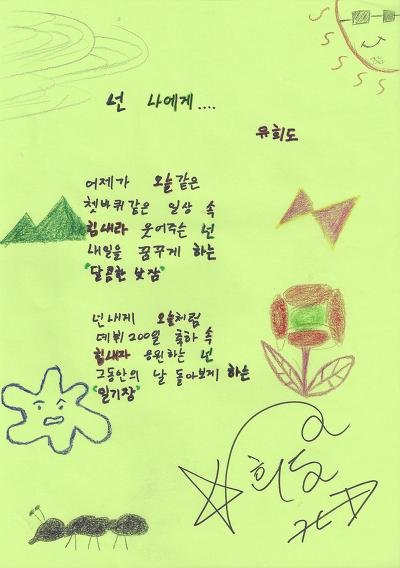 넌 나에게....
유희도
어제가 오늘같은
쳇바퀴같은 일상 속
힘내라 웃어주는 넌
내일을 꿈꾸게 하는
"달콤한 낮잠"
넌내게 오늘처럼
데뷔200일 축하 속
힘내자 응원하는 넌
그동안의 날 돌아보게 하는
"일기장"
희도